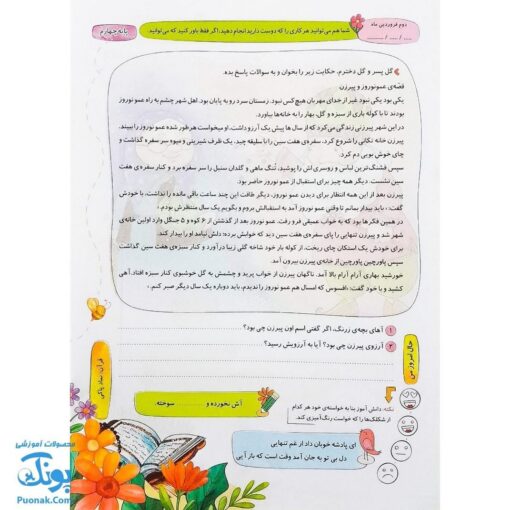 دوم فروردین ماه
شما هم می‌توانید هر کاری را که دوست دارید انجام دهید، اگر فقط باور کنید که می‌توانید.
پایه چهارم
گل پسر و گل دخترم، حکایت زیر را بخوان و به سوالات پاسخ بده.
قصّه‌ی عمو نوروز و پیرزن
یکی بود یکی نبود غیر از خدای مهربان هیچ‌کس نبود. زمستان سرد رو به پایان بود. اهل شهر چشم به راه عمو نوروز
بودند تا با کوله باری از سبزه و گل، بهار را به خانه‌ها بیاورد.
در این شهر پیرزنی زندگی می‌کرد که از سال ها پیش یک آرزو داشت. او میخواست هر طور شده عمو نوروز را ببیند.
پیرزن خانه تکانی را شروع کرد. سفره‌ی هفت سین را با سلیقه چید. یک ظرف شیرینی و میوه سر سفره گذاشت و
چای خوش بویی دم کرد.
سپس قشنگ‌ترین لباس و روسری اش را پوشید، تُنگ ماهی و گلدان سنبل را سر سفره برد و کنار سفره‌ی هفت
سین نشست. دیگر همه چیز برای استقبال از عمو نوروز حاضر بود.
پیرزن بعد از این همه انتظار برای دیدن عمو نوروز، دیگر طاقت این چند ساعت باقی مانده را نداشت، با خودش
گفت: باید بیدار بمانم تا وقتی عمو نوروز آمد به استقبالش بروم و بگویم یک سال منتظرش بودم.
در همین فکرها بود که به خواب عمیقی فرو رفت. عمو نوروز بعد از گذشتن از ۶ کوه و ۵ جنگل وارد اولین خانه‌ی
شهر شد و پیرزن تنهایی را پای سفره‌ی هفت سین دید که خوابش برده؛ دلش نیامد او را بیدار کند.
برای خودش یک استکان چای ریخت، از کوله بار خود شاخه گلی زیبا درآورد و کنار سبزه‌ی هفت سین گذاشت
سپس پاورچین پاورچین از خانه‌ی پیرزن بیرون آمد.
خورشید بهاری آرام آرام بالا آمد. ناگهان پیرزن از خواب پرید و چشمش به گل خوشبوی کنار سبزه افتاد. آهی
کشید و با خود گفت: افسوس که امسال هم عمو نوروز را ندیدم، باید دوباره یک سال دیگر صبر کنم.
۱ آهای بچه‌ی زرنگ، اگر گفتی اسم اون پیرزن چی بود؟
۲ آرزوی پیرزن چی بود؟ آیا به آرزویش رسید؟
حال امروز من
قرآن، نماد پاکی
آش نخورده و سوخته.
نکته: دانش آموز بنا به خواسته‌ی خود هر کدام
از شکلک‌ها را که خواست رنگ‌آمیزی کند.
ای پادشه خوبان داد از غم تنهایی
دل بی تو به جان آمد وقت است که باز آیی
محصولات آموزشی
پونک
Puonak.com